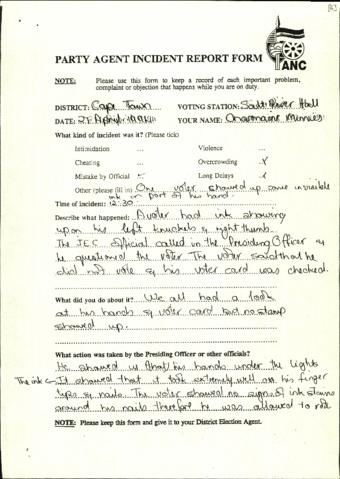 PARTY AGENT INCIDENT REPORT FORM
ANC
NOTE: Please use this form to keep a record of each important problem,
complaint or objection that happens while you are on duty.
DISTRICT: Cape Town VOTING STATION: Salt River Hall
DATE: 27 April YOUR NAME: Charmaine Minnies
What kind of incident was it? (Please tick)
Intimidation Violence
Cheating Overcrowding
Mistake by Official Long Delays
Other (please fill in) One voter showed up some invisible
ink on part of his hand.
Time of incident: 12:30
Describe what happened: A voter had ink showing
upon his left knuckels & right thumb.
The IEC official called in the Presiding Officer &
he questioned the voter. The voter said that he
did not vote & his voter card was checked.
What did you do about it? We all had a look
at his hands & voter card but no stamp
showed up.
What action was taken by the Presiding Officer or other officials?
He showed us that his hands under the lights
The ink It showed that it took extremely well on his finger
tips & nails. The voter showed no signs of ink stains
around his nails therefore he was allowed to vote
NOTE: Please keep this form and give it to your District Election Agent.